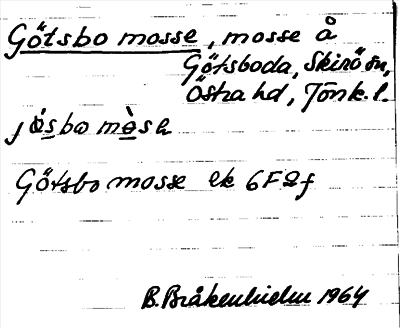 Götsbo mosse, mosse å
Götsboda, Skirö sn,
Östra hd, Jönk. l.
jösbo mòsə
Götsbo mosse ek 6F2f
B. Bråkenhielm 1964